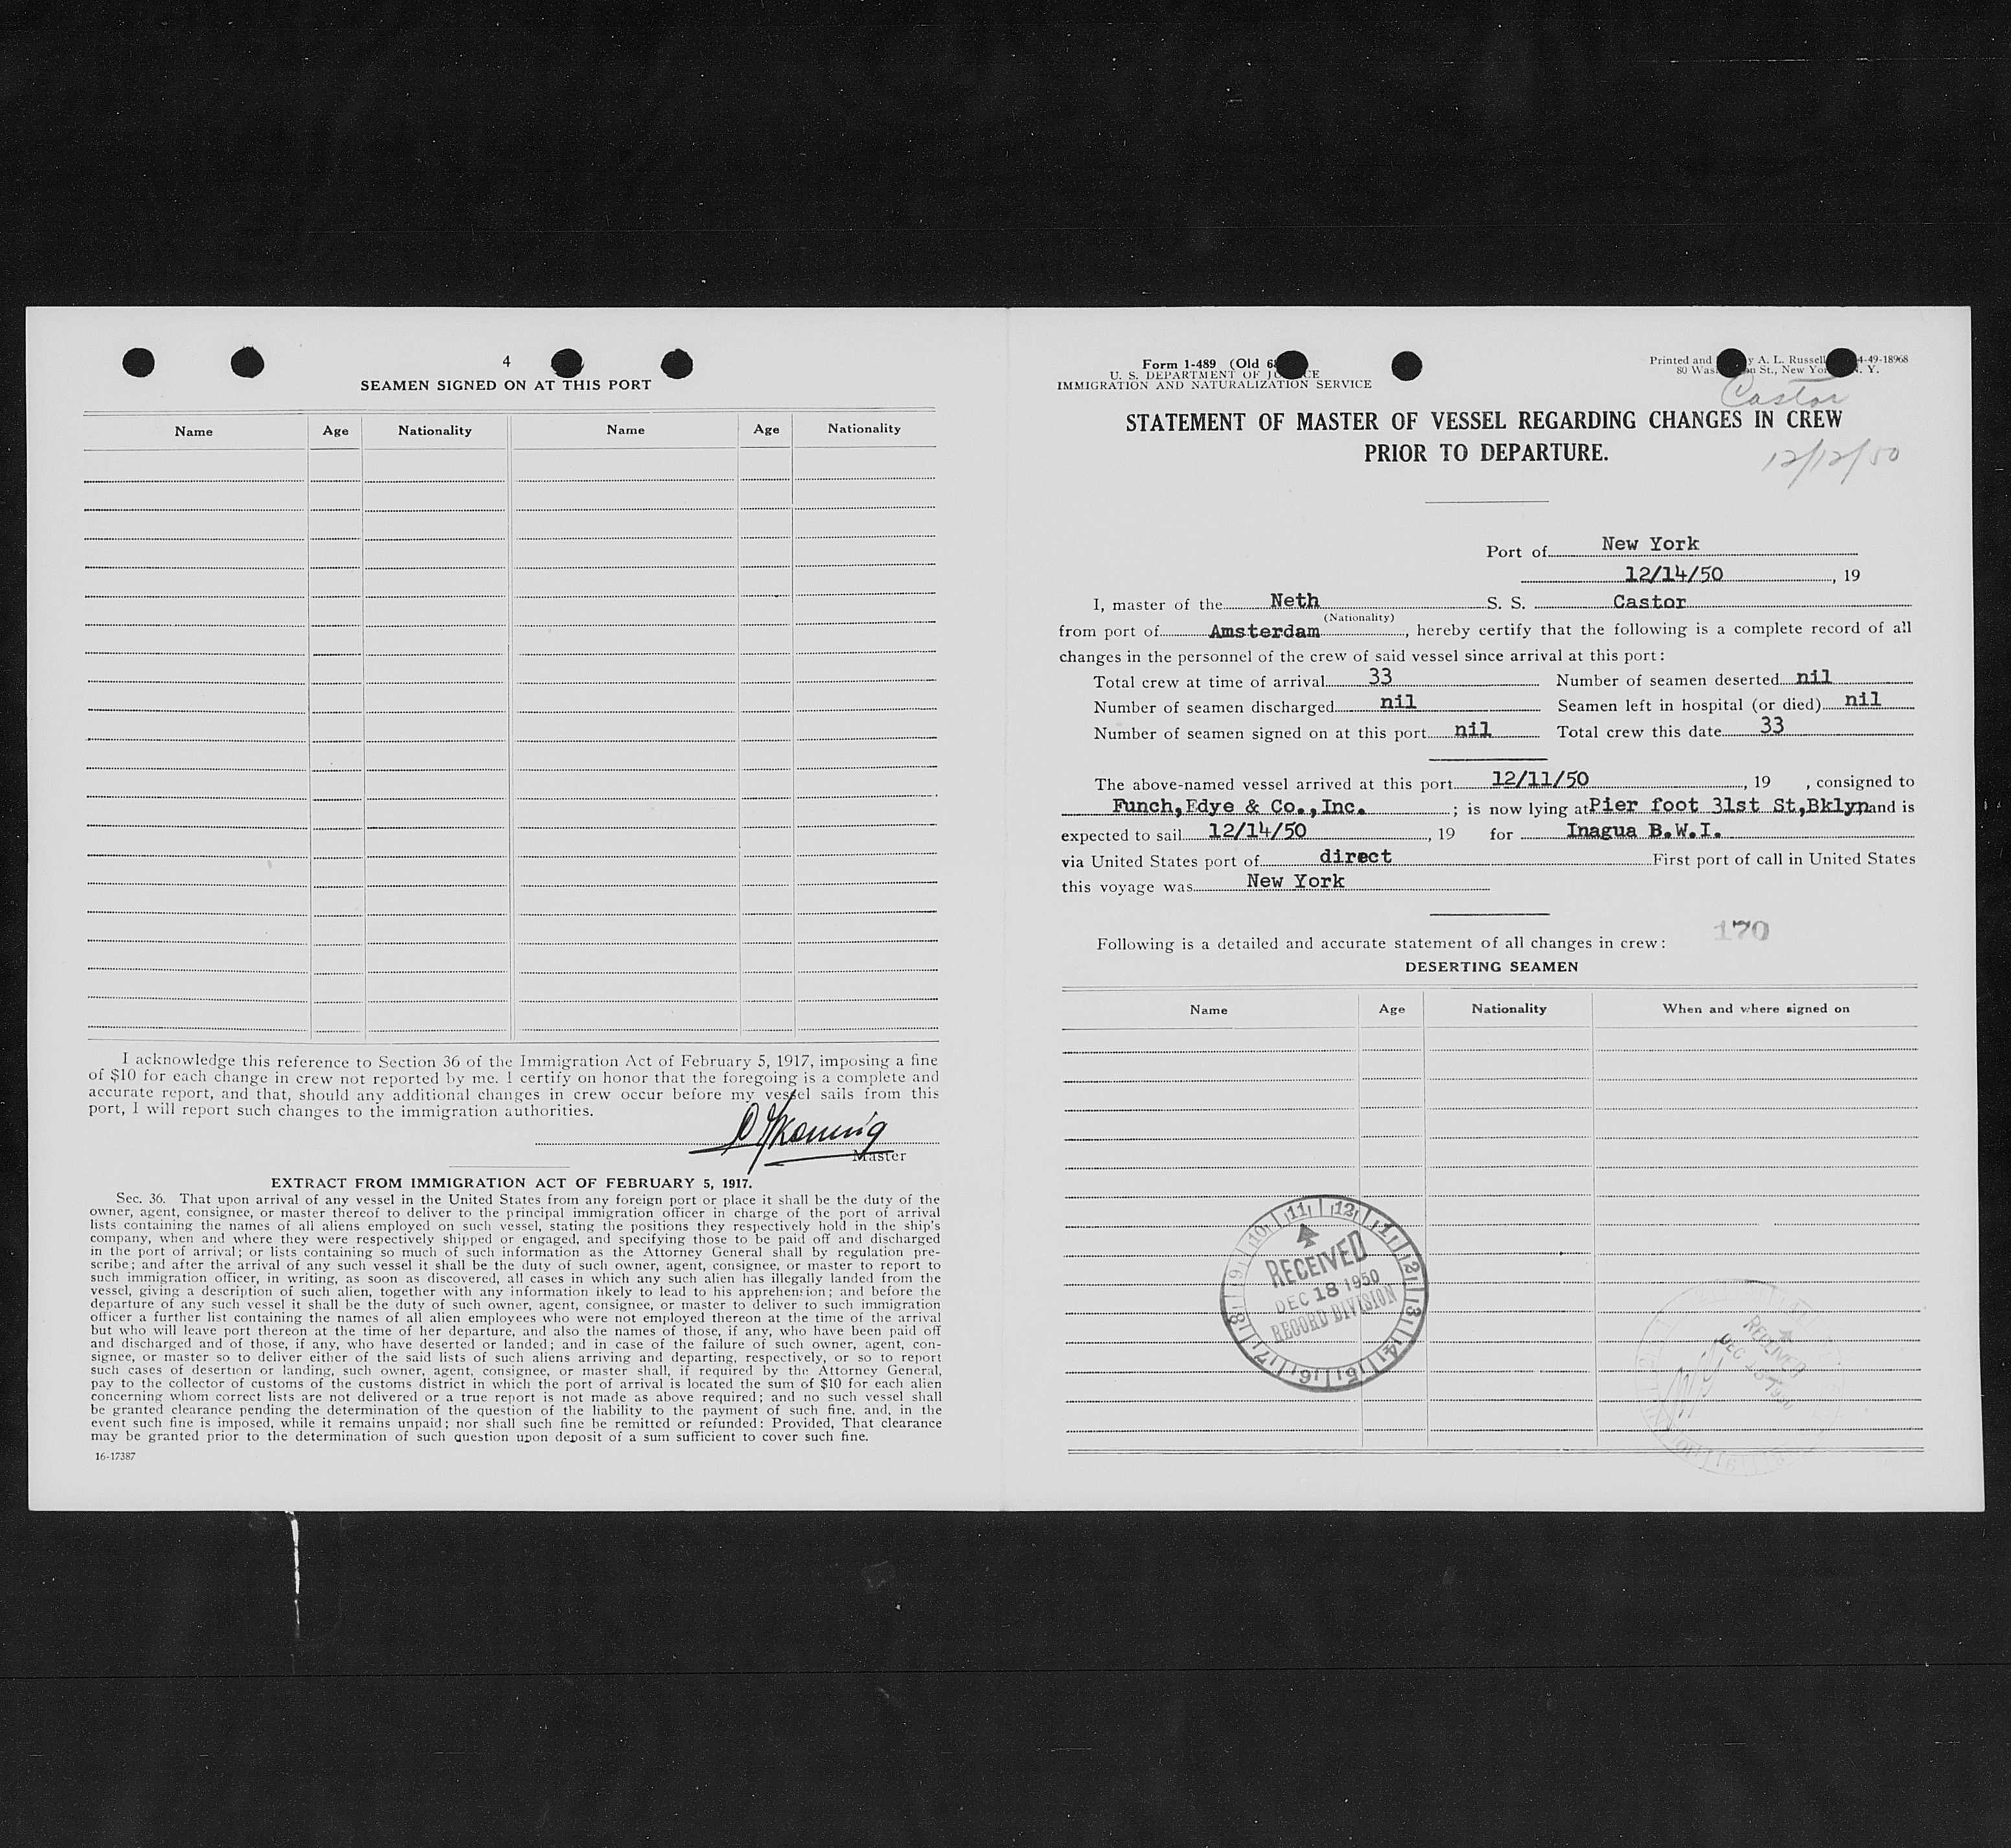 4
SEAMEN SIGNED ON AT THIS PORT
Name Age Nationality Name Age Nationality
I acknowledge this reference to Section 36 of the Immigration Act of February 5, 1917, imposing a fine
of $10 for each change in crew not reported by me. I certify on honor that the foregoing is a complete and
accurate report, and that, should any additional changes in crew occur before my vessel sails from this
port, I will report such changes to the immigration authorities.
Master
EXTRACT FROM IMMIGRATION ACT OF FEBRUARY 5, 1917.
Sec. 36. That upon arrival of any vessel in the United States from any foreign port or place it shall be the duty of the
owner, agent, consignee, or master thereof to deliver to the principal immigration officer in charge of the port of arrival
lists containing the names of all aliens employed on such vessel, stating the positions they respectively hold in the ship's
company, when and where they were respectively shipped or engaged, and specifying those to be paid off and discharged
in the port of arrival; or lists containing so much of such information as the Attorney General shall by regulation pre-
scribe; and after the arrival of any such vessel it shall be the duty of such owner, agent, consignee, or master to report to
such immigration officer, in writing, as soon as discovered, all cases in which any such alien has illegally landed from the
vessel, giving a description of such alien, together with any information likely to lead to his apprehension; and before the
departure of any such vessel it shall be the duty of such owner, agent, consignee, or master to deliver to such immigration
officer a further list containing the names of all alien employees who were not employed thereon at the time of the arrival
but who will leave port thereon at the time of her departure, and also the names of those, if any, who have been paid off
and discharged and of those, if any, who have deserted or landed; and in case of the failure of such owner, agent, con-
signee, or master so to deliver either of the said lists of such aliens arriving and departing, respectively, or so to report
such cases of desertion or landing, such owner, agent, consignee, or master shall, if required by the Attorney General,
pay to the collector of customs of the customs district in which the port of arrival is located the sum of $10 for each alien
concerning whom correct lists are not delivered or a true report is not made as above required; and no such vessel shall
be granted clearance pending the determination of the question of the liability to the payment of such fine, and, in the
event such fine is imposed, while it remains unpaid; nor shall such fine be remitted or refunded: Provided, That clearance
may be granted prior to the determination of such question upon deposit of a sum sufficient to cover such fine.
16-17387
Form 1-489 (Old 6
U. S. DEPARTMENT OF J CE
IMMIGRATION AND NATURALIZATION SERVICE
Printed and y A. L. Russell 4-49-18968
80 Was on St., New Yor . Y.
Castor
STATEMENT OF MASTER OF VESSEL REGARDING CHANGES IN CREW
PRIOR TO DEPARTURE.
12/12/50
Port of New York
12/14/50, 19
I, master of the Neth S. S. Castor
(Nationality)
from port of Amsterdam, hereby certify that the following is a complete record of all
changes in the personnel of the crew of said vessel since arrival at this port:
Total crew at time of arrival 33 Number of seamen deserted nil
Number of seamen discharged nil Seamen left in hospital (or died) nil
Number of seamen signed on at this port nil Total crew this date 33
The above-named vessel arrived at this port 12/11/50, 19 , consigned to
Funch,Edye & Co.,Inc. ; is now lying at Pier foot 31st St,Bklyn and is
expected to sail 12/14/50, 19 for Inagua B.W.I.
via United States port of direct First port of call in United States
this voyage was New York
170
Following is a detailed and accurate statement of all changes in crew:
DESERTING SEAMEN
Name Age Nationality When and where signed on
11 12 1 2 3 4 5 6 7 8 9 10
RECEIVED
DEC 18 1950
RECORD DIVISION
RECEIVED
DEC